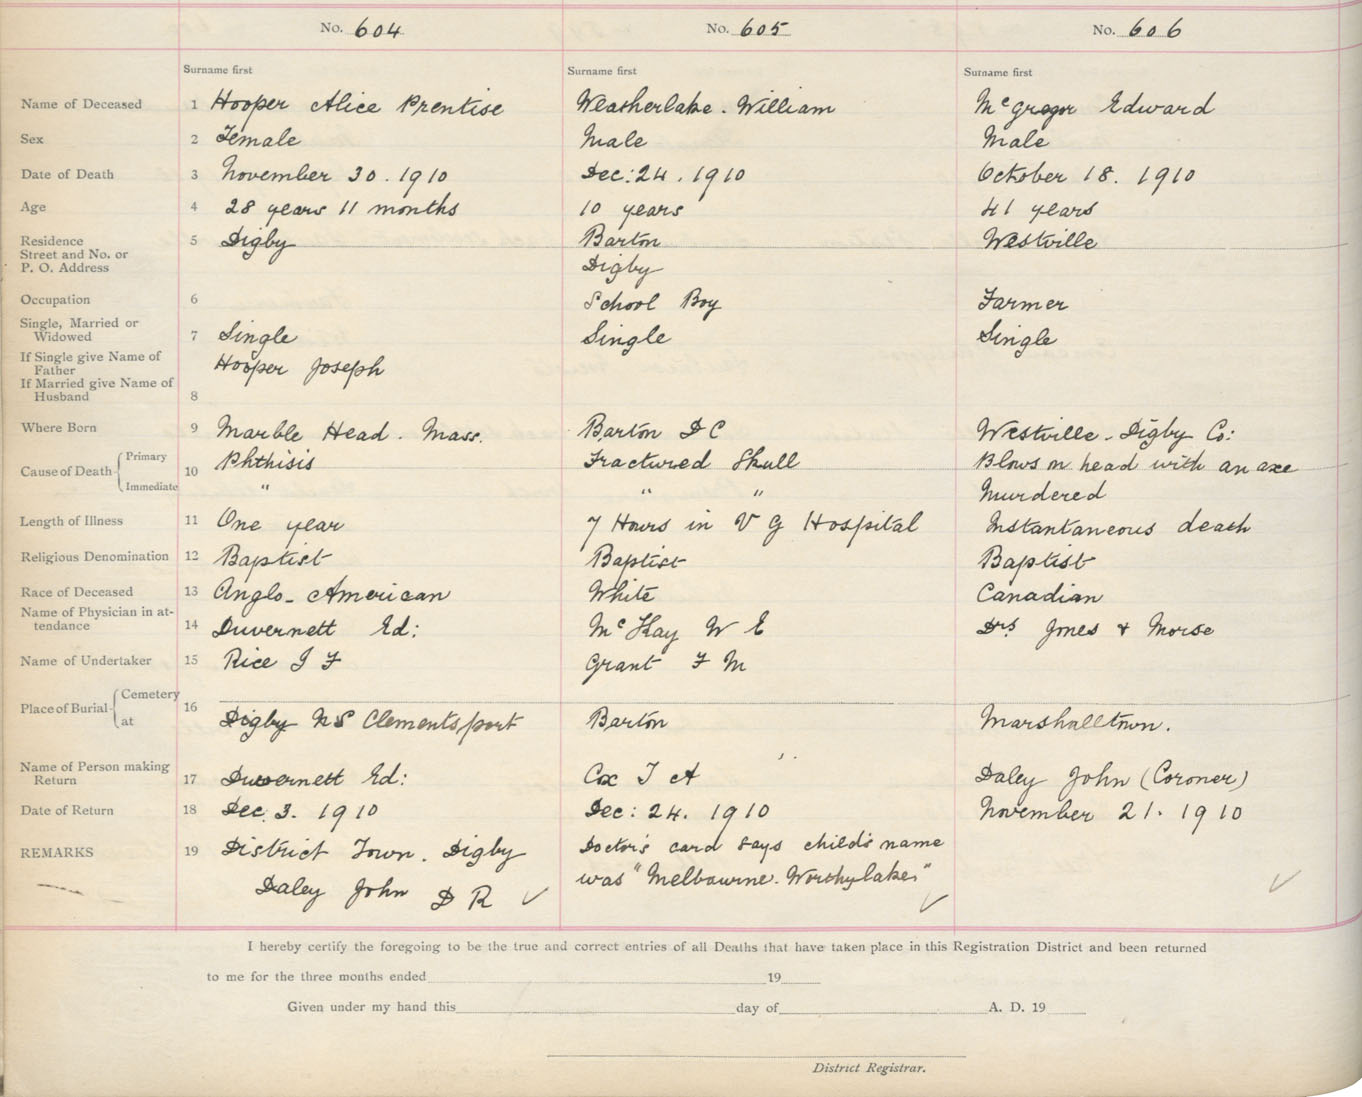 No. 604 No. 605 No. 606
Surname first Surname first Surname first
Name of Deceased 1 Hooper Alice Prentise Weatherlake. William McGregor Edward
Sex 2 Female Male Male
Date of Death 3 November 30. 1910 Dec: 24. 1910 October 18. 1910
Age 4 28 years 11 months 10 years 41 years
Residence 5 Digby Barton Westville
Street and No. or
P. O. Address Digby
Occupation 6 School Boy Farmer
Single, Married or
Widowed 7 Single Single Single
If Single give Name of
Father Hooper Joseph
If Married give Name of
Husband 8
Where Born 9 Marble Head. Mass. Barton D C Westville - Digby Co:
Cause of Death Primary 10 Phthisis Fractured Skull Blows on head with an axe
Immediate " " " Murdered
Length of Illness 11 One year 7 Hours in V G Hospital Instantaneous death
Religious Denomination 12 Baptist Baptist Baptist
Race of Deceased 13 Anglo-American White Canadian
Name of Physician in at-
tendance 14 Duvernett Ed: McKay W E Drs Jones & Morse
Name of Undertaker 15 Rice J F Grant F M
Place of Burial Cemetery 16
at Digby NS Clementsport Barton Marshalltown.
Name of Person making
Return 17 Duvernett Ed: Cox J A Daley John (Coroner)
Date of Return 18 Dec. 3. 1910 Dec: 24. 1910 November 21. 1910
REMARKS 19 District Town. Digby Doctor's card says child's name
Daley John D R was "Melbourne. Worthylake."
I hereby certify the foregoing to be the true and correct entries of all Deaths that have taken place in this Registration District and been returned
to me for the three months ended 19
Given under my hand this day of A. D. 19
District Registrar.